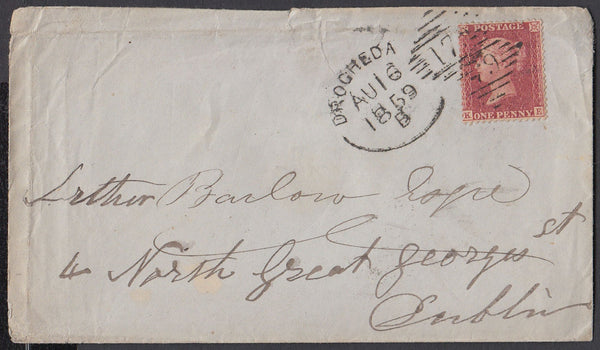 DROGHEDA
AU 16
1859
B
17
POSTAGE
ONE PENNY
K E
Barlow Esqre
4 North Great Georges st
Dublin